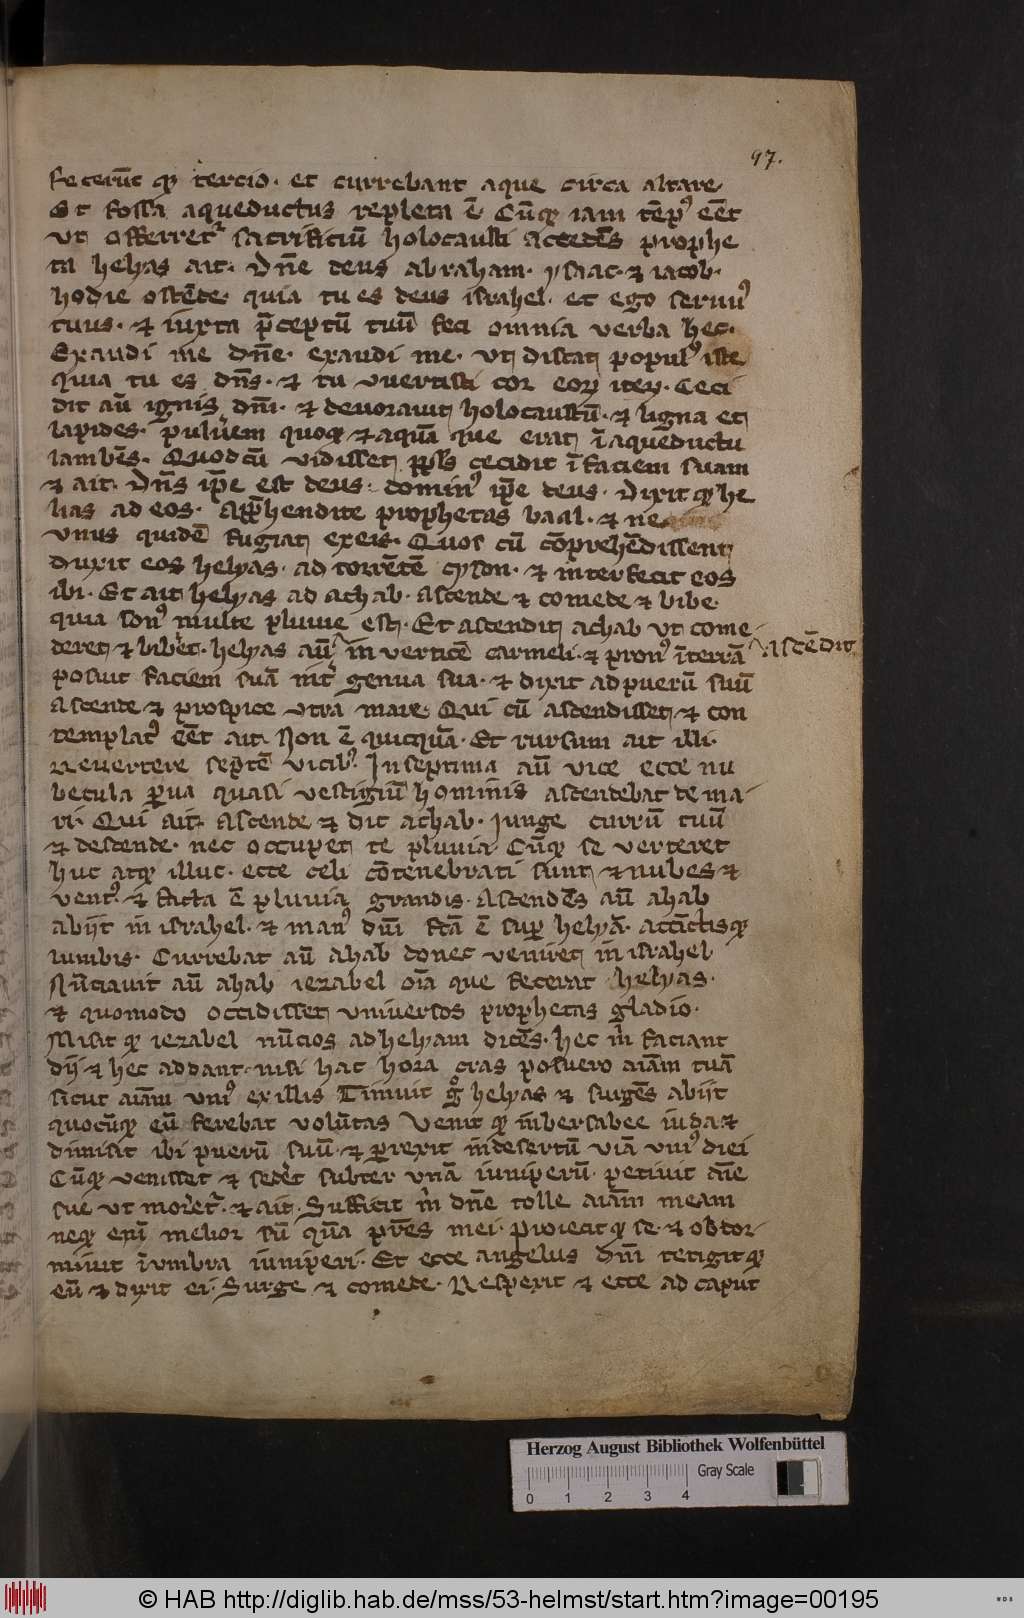 97.
feceru̅t qȝ tercio· et currebant aque circa altare
Et fossa aqueductus repleta e̅· Cu̅qȝ iam te̅pꝰ ee̅t
ut offerret᷑ sacrificiu̅ holocausti accede̅s prophe
ta helyas ait· Dn̅e deus abraham· ysaac· ⁊ iacob·
hodie oste̅de· quia tu es deus israhel· et ego seruuꝰ
tuus· ⁊ iuxta p̅ceptu̅ tuu̅ feci omnia verba hec·
Exaudi me dn̅e· exaudi me· ut discat popul'ꝰ iste
quia tu es dn̅s· ⁊ tu uuertisti cor eoꝝ iteꝝ· Ceci
dit au̅ ignis dn̅i· ⁊ deuorauit holocaustu̅· ⁊ ligna et
lapides· puluere̅m quoqȝ ⁊ aqua̅ que erat i̅ aqueductu
lambe̅s· Quod cu̅ vidisset pp̅ls cecidit i̅ faciem suam
⁊ ait· Dn̅s ip̅e est deus· dominꝰ ip̅e deus· Dixit qȝ he
lias ad eos· App̅hendite prophetas baal· ⁊ ne
unus quide̅ fugiat exeis· Quos cu̅ co̅prehe̅dissent
duxit eos helyas· ad torre̅te̅ cyson· ⁊ interfecit eos
ibi· Et ait helyas ad achab· Ascende ⁊ comede ⁊ bibe·
quia sonꝰ multe pluuie est· Et ascendit achab ut come
deret ⁊ biber̅et· helyas au̅ in vertice̅ carmeli· ⁊ pronꝰ i̅ terra̅
Asce̅dit
posuit faciem sua̅ int̅ genua sua· ⁊ dixit ad pueru̅ suu̅
Ascende ⁊ prospice 9tra mare· Qui cu̅ ascendisset ⁊ con
templatꝰ ee̅t ait· Non e̅ quicqua̅· Et rursum ait illi·
Reuertere septe̅ vicibꝰ· In septima au̅ vice ecce nu
becula p̲ua quasi vestigiu̅ hominis ascendebat de ma
ri· Qui ait· Ascende ⁊ dic achab· Iunge curru̅ tuu̅
⁊ descende· nec occupet te pluuia· Cu̅qȝ se verteret
huc atqȝ illuc· ecce celi co̅tenebrati sunt ⁊ nubes ⁊
ventꝰ· ⁊ facta e̅ pluuia grandis· Ascende̅s au̅ ahab
abiit in israhel· ⁊ manꝰ dn̅i f̅ca̅ e̅ sup̲ helya̅· acci̅ctisqȝ
lumbis· Currebat au̅ ahab donec veniret in israhel
Nu̅ciauit au̅ ahab iezabel oi̅a que fecerat helyas·
⁊ quomodo occidisset uniuersos prophetas gladio·
Misit qȝ iezabel nu̅cios ad helyam dice̅s· hec m̅ faciant
dij ⁊ hec addant· nisi hac hora cras posuero ai̅am tua̅
sicut ai̅am uniꝰ ex illis Timuit gͦ helyas ⁊ surge̅s abiit
quocu̅qȝ eu̅ ferebat volu̅tas Venit qȝ in bersabee iuda ⁊
dimisit ibi pueru̅ suu̅· ⁊ p̲rexit in desertu̅ via̅ uniꝰ diei
Cu̅qȝ venisset ⁊ seder̅et subter una̅ iuniperu̅· petiuit ai̅e
sue ut moreret᷑· ⁊ ait· Sufficit m̅ dn̅e tolle ai̅am meam
neqȝ eni̅ melior su̅ qua̅ pr̅es mei· Proiecit qȝ se· ⁊ obdor
miuit i̅ umbra iuniperi· Et ecce angelus dn̅i tetigit qȝ
eu̅ ⁊ dixit ei· Surge ⁊ comede· Respexit ⁊ ecce ad caput
Herzog August Bibliothek Wolfenbüttel
Gray Scale
0 1 2 3 4
© HAB http://diglib.hab.de/mss/53-helmst/start.htm?image=00195